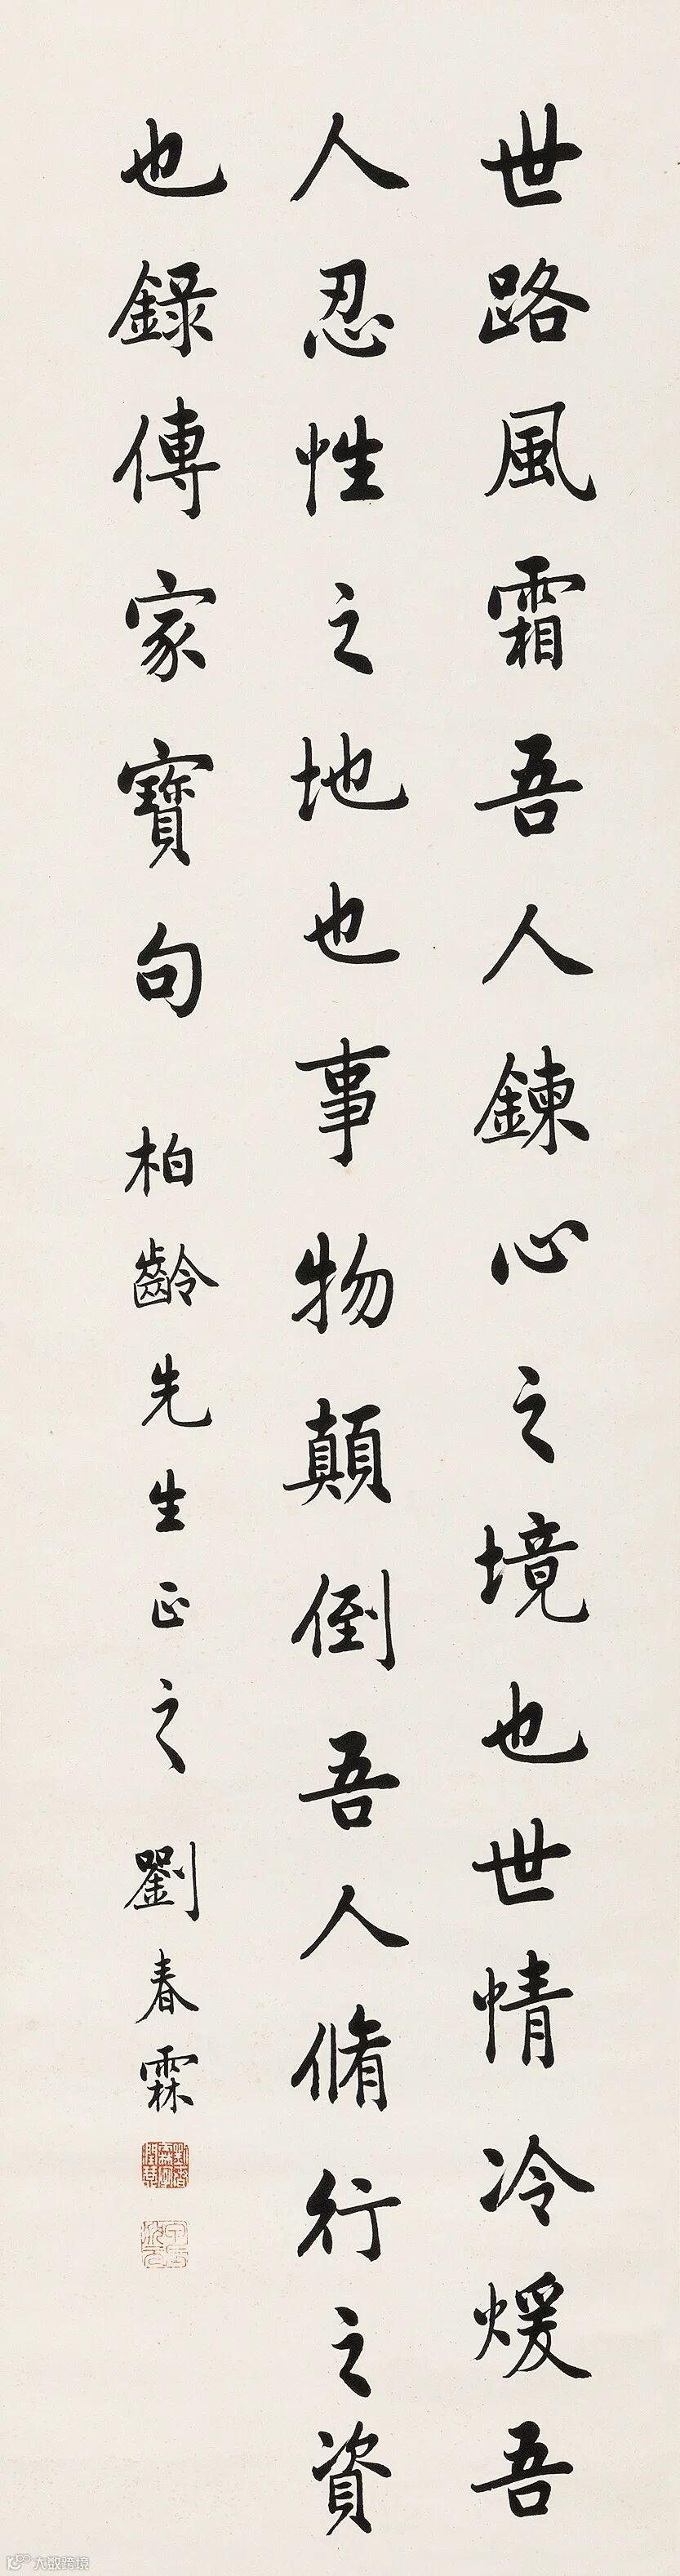 世路風霜吾人鍊心之境也世情冷煖吾
人忍性之地也事物顛倒吾人脩行之資
也錄傳家寶句 柏齡先生正之 劉春霖
大数跨境